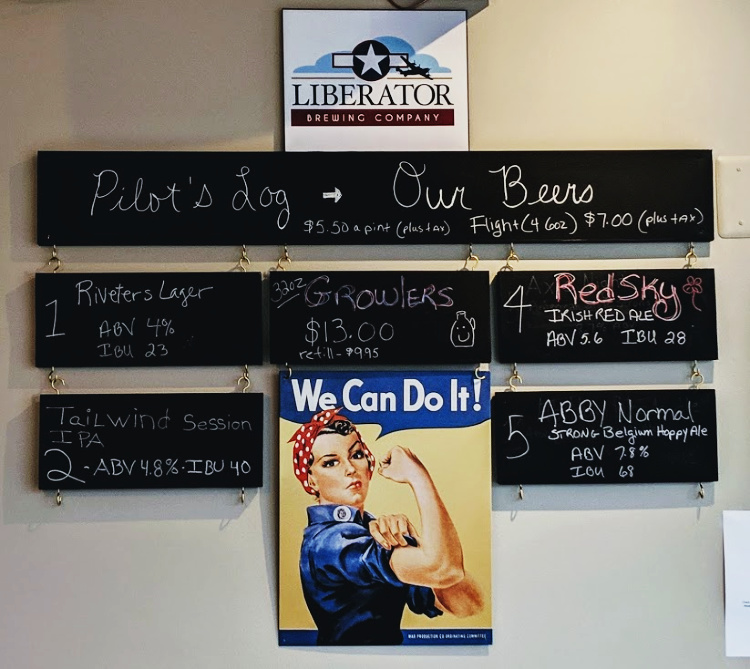 LIBERATOR
BREWING COMPANY
Pilot's Log → Our Beers
$5.50 a pint (plus tax) Flight (4 6oz) $7.00 (plus tax)
1 Riveters Lager
ABV 4%
IBU 23
33oz GROWlERS
$13.00
refill - $9.95
4 RedSky
IRISH RED ALE
ABV 5.6 IBU 28
TAILWIND SESSION
IPA
2 - ABV 4.8% - IBU 40
5 ABBY Normal
STRONG Belgium Hoppy Ale
ABV 7.8%
IBU 68
We Can Do It!
WAR PRODUCTION CO-ORDINATING COMMITTEE